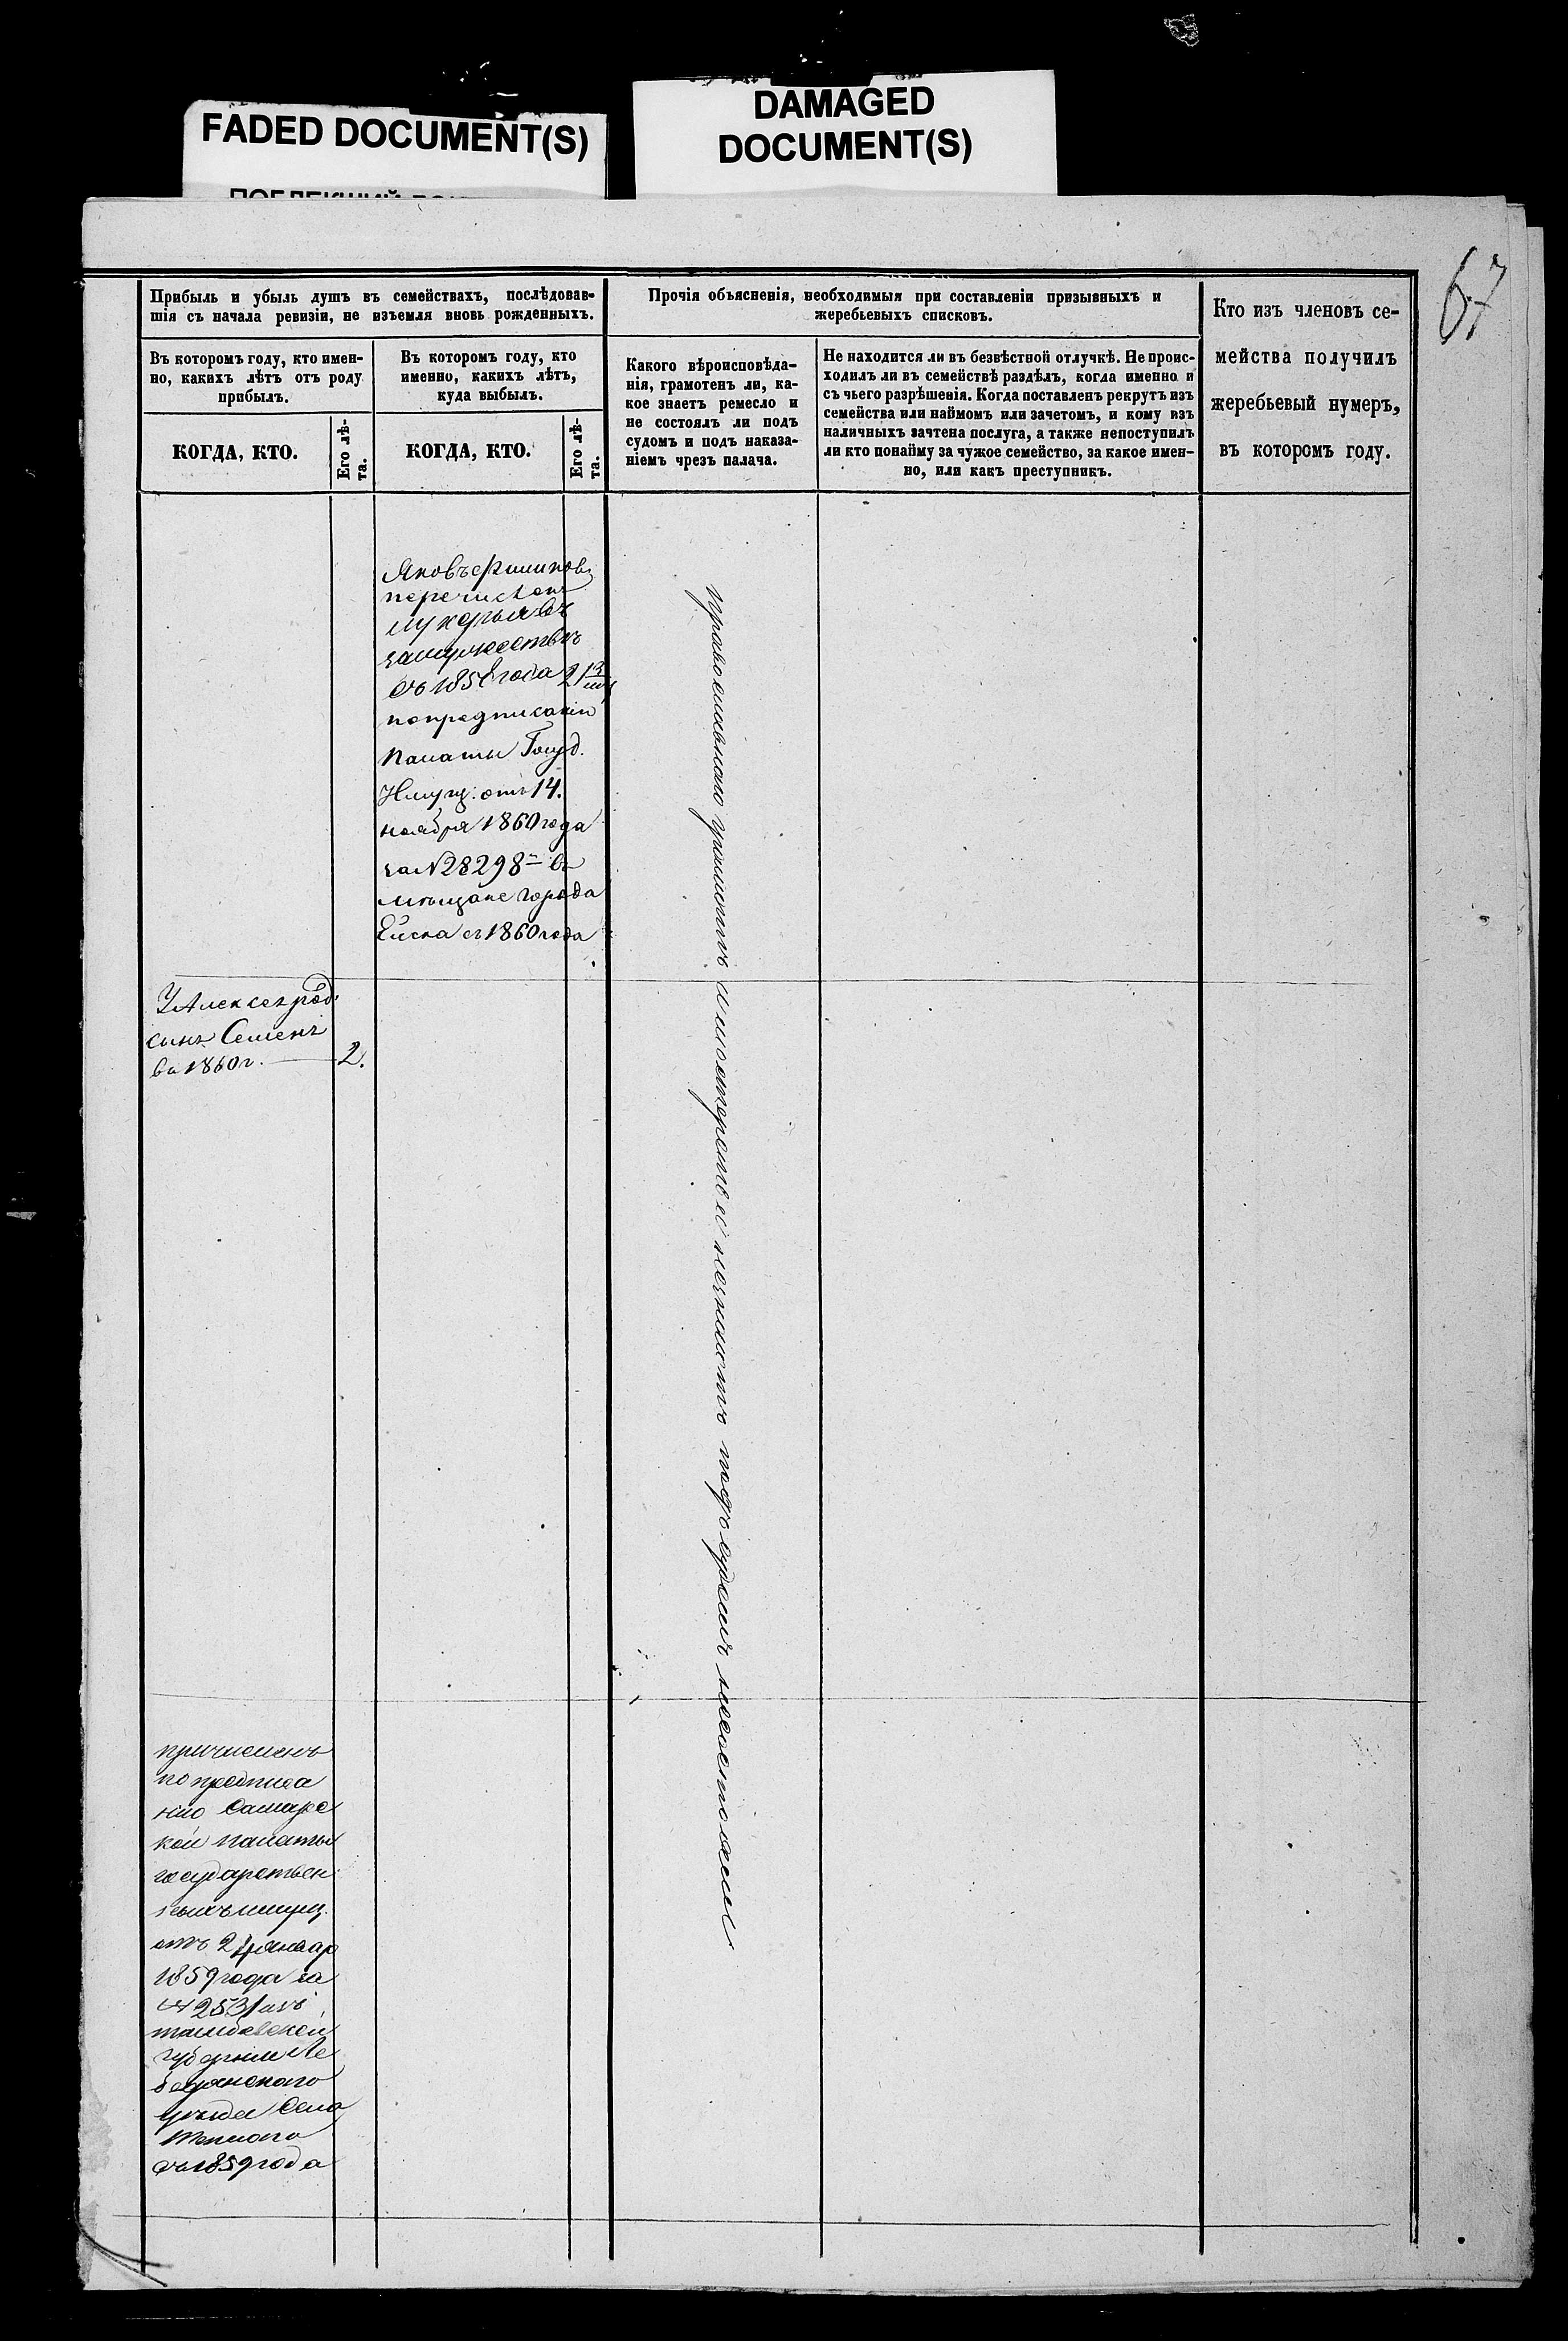 FADED DOCUMENT(S)
DAMAGED
DOCUMENT(S)
67
Прибыль и убыль душъ въ семействахъ, послѣдовав-
шія съ начала ревизіи, не изъемля вновь рожденныхъ.
Прочія объясненія, необходимыя при составленіи призывныхъ и
жеребьевыхъ списковъ.
Кто изъ членовъ се-
мейства получилъ
жеребьевый нумеръ,
въ которомъ году.
Въ которомъ году, кто имен-
но, какихъ лѣтъ отъ роду
прибылъ.
Въ которомъ году, кто
именно, какихъ лѣтъ,
куда выбылъ.
Какого вѣроисповѣда-
нія, грамотенъ ли, ка-
кое знаетъ ремесло и
не состоялъ ли подъ
судомъ и подъ наказа-
ніемъ чрезъ палача.
Не находится ли въ безвѣстной отлучкѣ. Не проис-
ходилъ ли въ семействѣ раздѣлъ, когда именно и
съ чьего разрѣшенія. Когда поставленъ рекрутъ изъ
семейства или наймомъ или зачетомъ, и кому изъ
наличныхъ зачтена послуга, а также непоступилъ
ли кто понайму за чужое семейство, за какое имен-
но, или какъ преступникъ.
КОГДА, КТО.
Его лѣ-
та.
КОГДА, КТО.
Его лѣ-
та.
Яковъ
перечислен
замужествѣ
года
попредписанію
Палаты Госуд.
Имущ. отъ 14.
ноября 1860 года
за N 28298 въ
мѣщане города
Ейска съ 1860 года
У Алексея род.
сынъ Семенъ
въ 1860 г. 2.
православнаго грамотъ и мастерство незнаютъ подъ судомъ несостояли
причисленъ
по предписа
нію Самарс
кой палаты
государствен
ныхъ имущ.
отъ январ
1859 года за
N 2531 изъ
тамбовской
губерніи Ле
бедянскаго
уѣзда Села
Теплаго
съ 1859 года